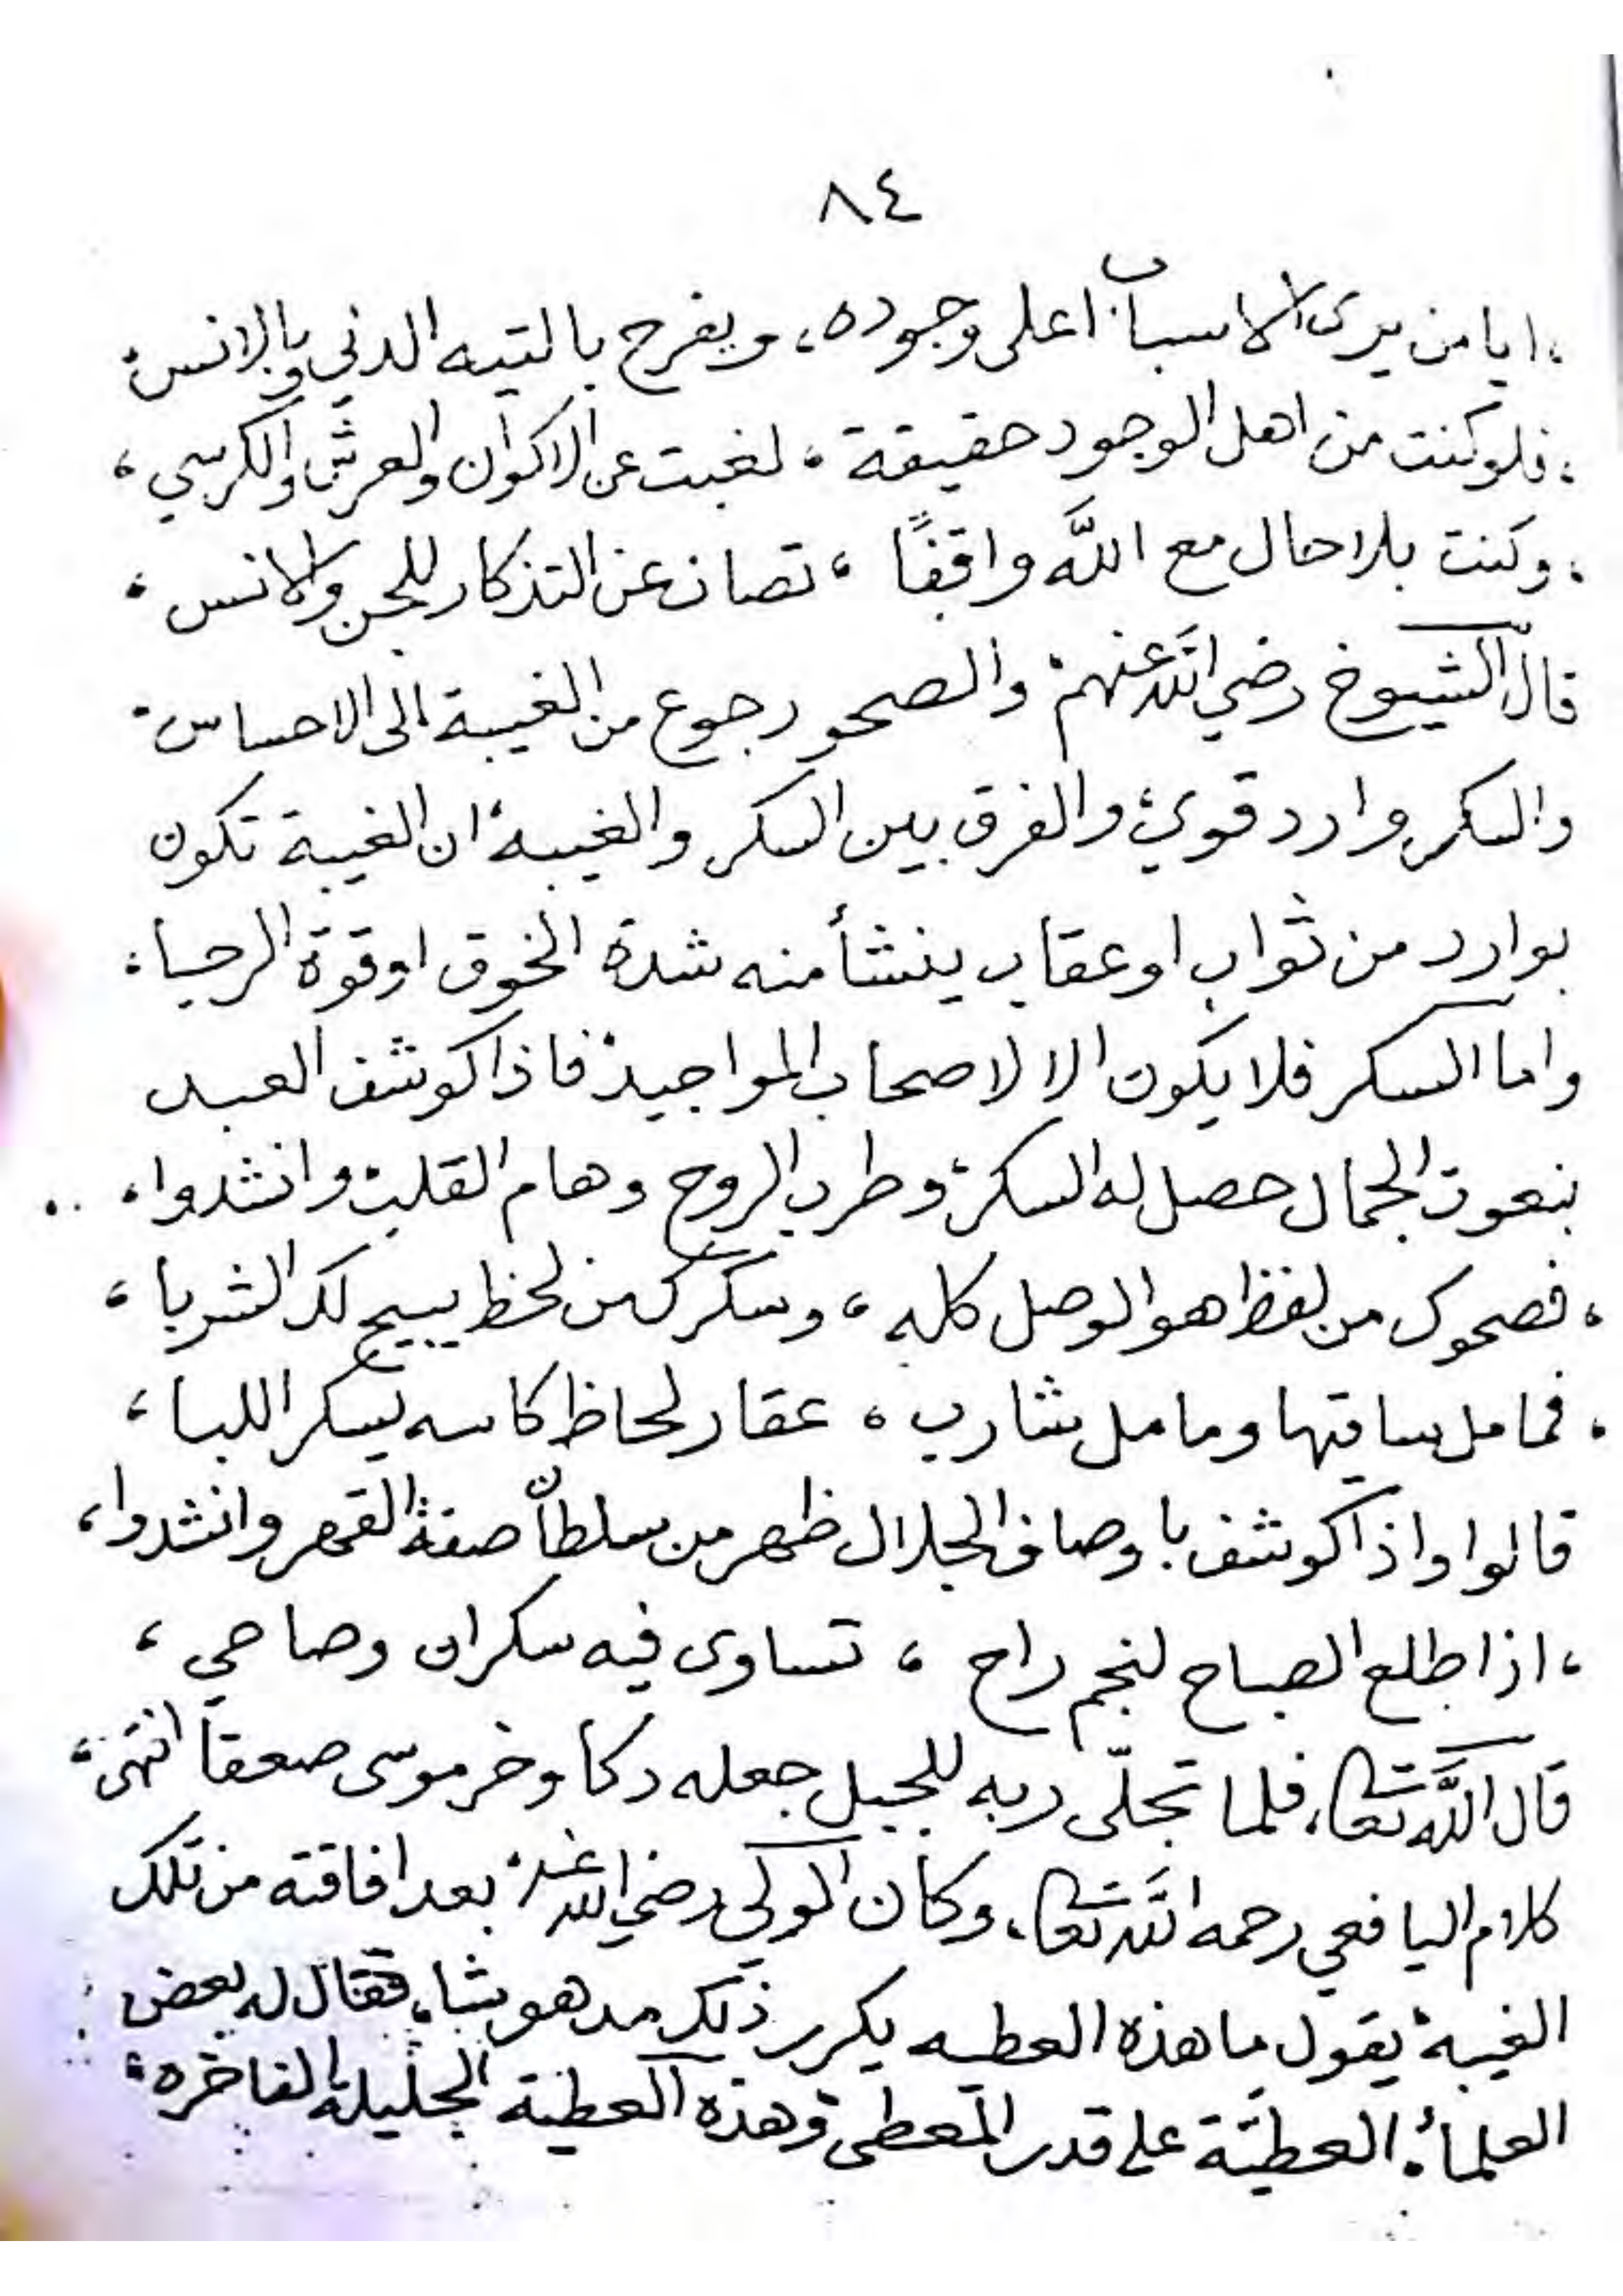 ٨٤
، ايا من يرى الاسباب اعلى وجوده، ويفرح بالتيه الدني وبالانس،
، فلو كنت من اهل الوجود حقيقة ، لغبت عن الاكوان والعرش والكرسي ،
، وكنت بلا حال مع اللّه واقفًا ، تصان عن التذكار للجن والانس ،
قال الشيوخ رضي الله عنهم، والصحو رجوع من الغيبة الى الاحساس،
والسكر وارد قوي، والفرق بين السكر والغيبة، ان الغيبة تكون
بوارد من ثواب او عقاب ينشأ منه شدة الخوف او قوة الرجاء،
واما السكر فلا يكون الا لاصحاب المواجيد، فاذا كوشف العبد
بنعوت الجمال حصل له السكر، وطرب الروح وهام القلب، وانشدوا، ..
، فصحوك من لفظ هو الوصل كله ، وسكرك من لحظ يبيح لك الشربا ،
، فما مل ساقيها وما مل شارب ، عقار لحاظ كاسه يسكر اللبا ،
قالوا واذا كوشف باوصاف الجلال ظهر من سلطان صفة القهر وانشدوا،
، اذا طلع الصباح لنجم راح ، تساوى فيه سكران وصاحي ،
قال اللّه تعالى، فلما تجلّى ربه للجبل جعله دكا وخر موسى صعقا انتهى،
كلام اليافعي رحمه الله تعالى، وكان الولي رضي الله عنه، بعد افاقته من تلك
الغيبة، يقول ما هذه العطيه يكرر ذلك مدهوشا، فقال له بعض
العلماء، العطيّة على قدر المعطي، وهذه العطية الجليلة الفاخره،